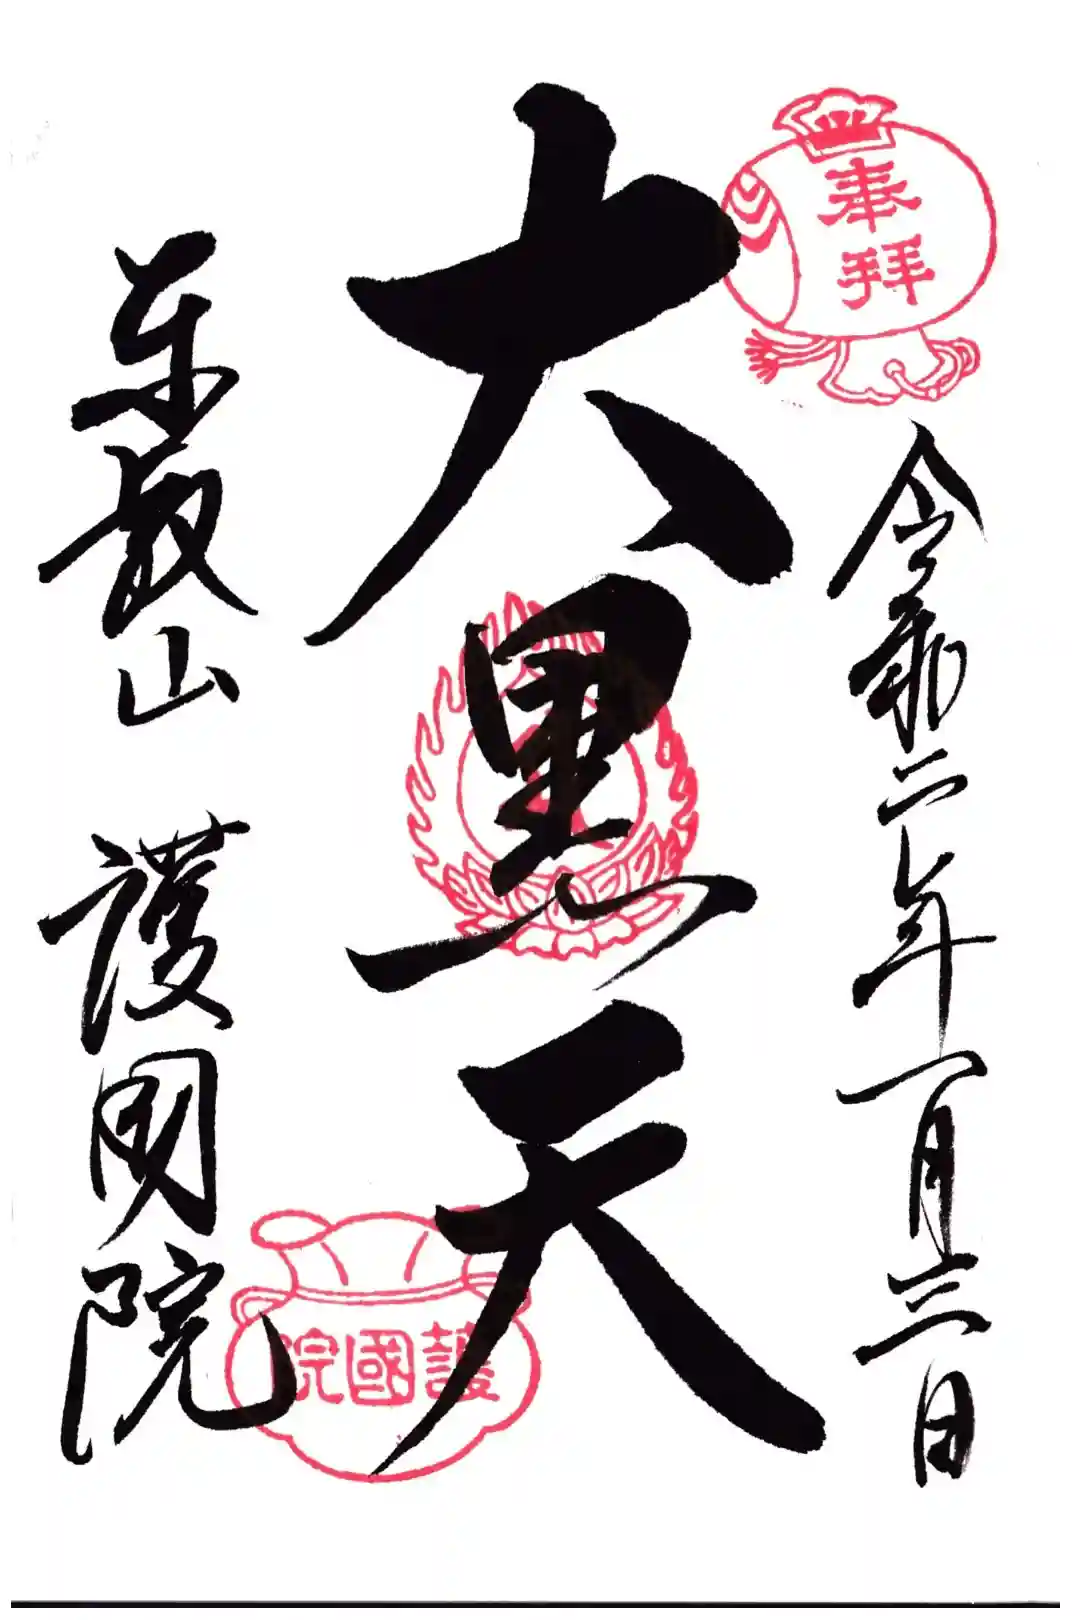 奉拝
令和二年一月三日
大黒天
東叡山 護国院
護國院